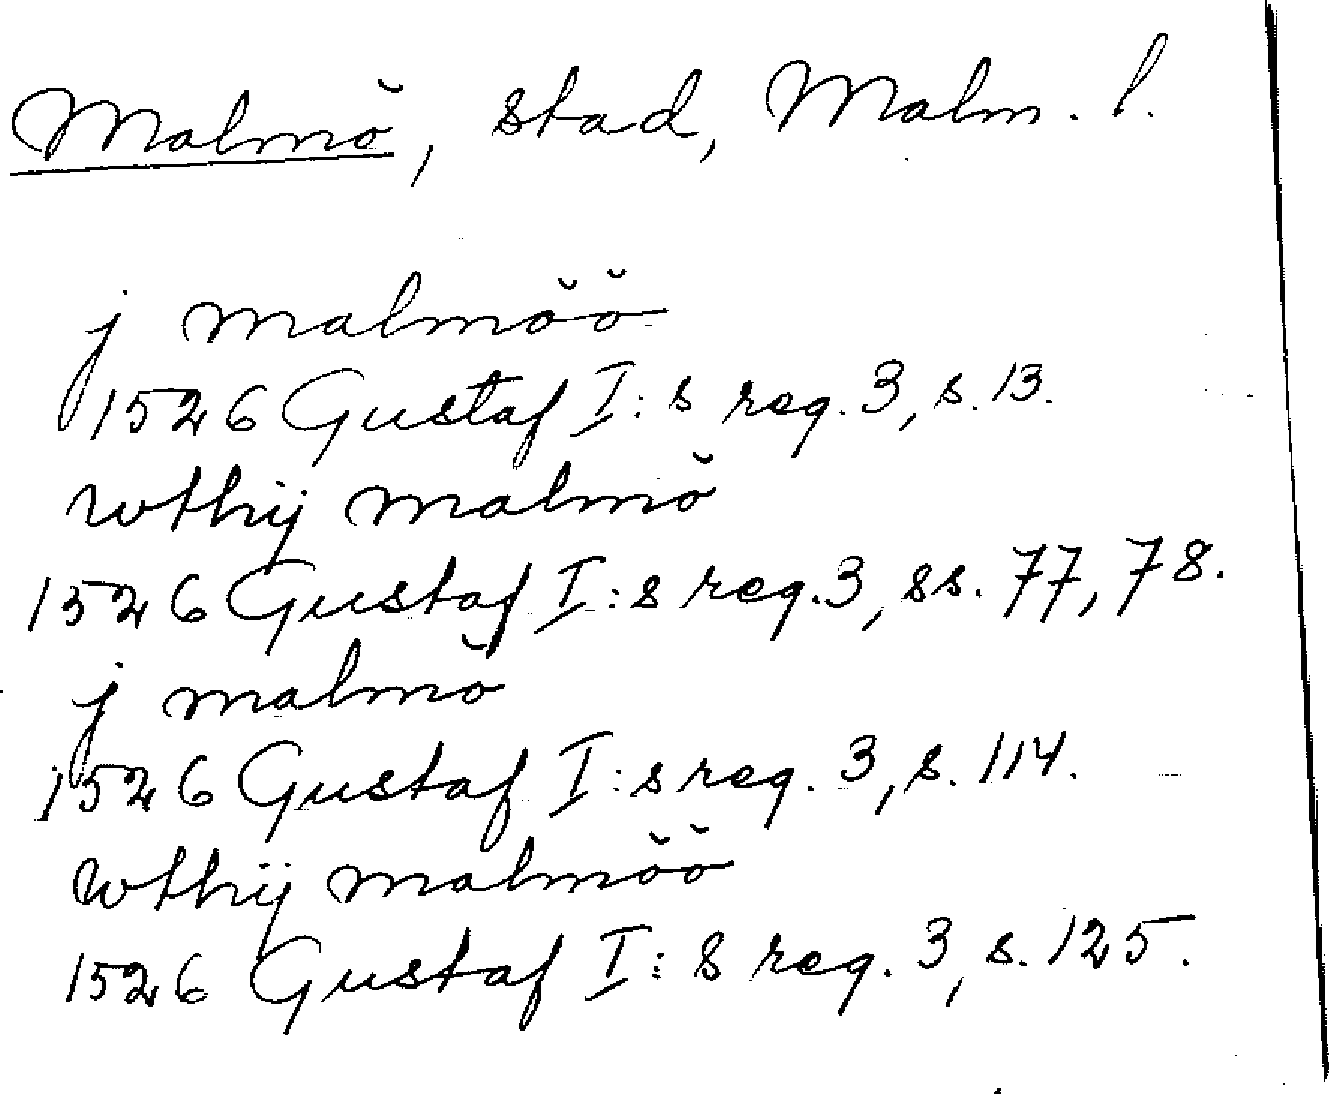 Malmö, stad, Malm. l.
j malmöö
1526 Gustaf I:s reg. 3, s. 13.
wthij malmö
1526 Gustaf I:s reg. 3, ss. 77, 78.
j malmö
1526 Gustaf I:s reg. 3, s. 114.
wthij malmöö
1526 Gustaf I:s reg. 3, s. 125.